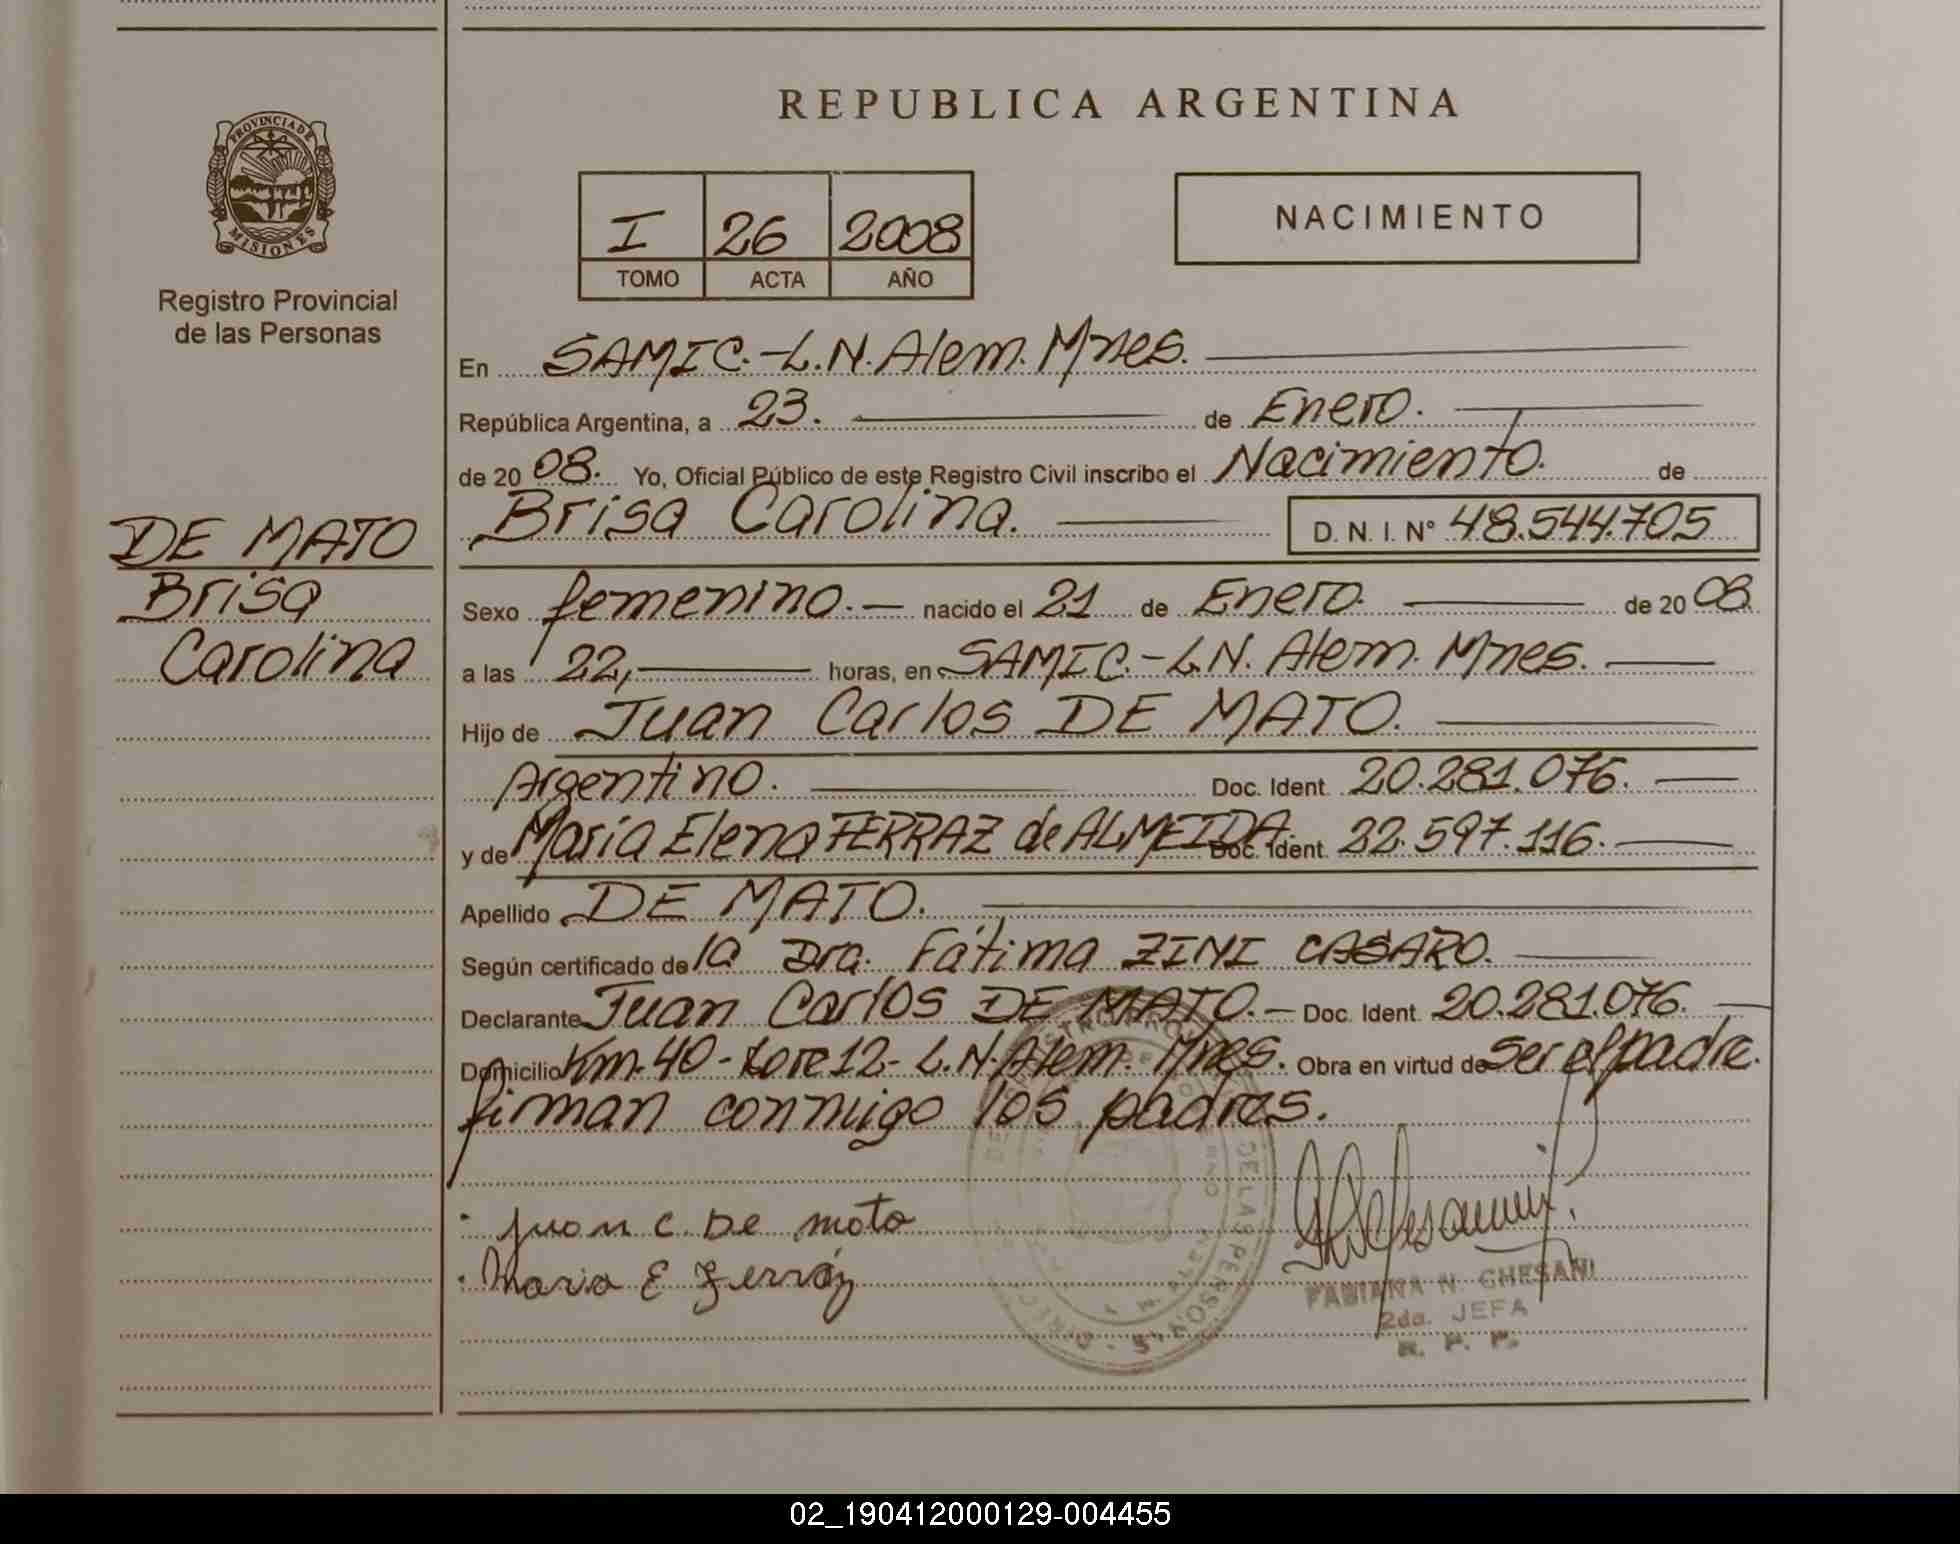 REPUBLICA ARGENTINA
PROVINCIA DE
MISIONES
Registro Provincial
de las Personas
I 26 2008
TOMO ACTA AÑO
NACIMIENTO
En SAMIC.-L.N.Alem. Mnes.
República Argentina, a 23. de Enero.
de 20 08. Yo, Oficial Público de este Registro Civil inscribo el Nacimiento. de
Brisa Carolina. D. N. I. N° 48.544.705
DE MATO
Brisa
Carolina
Sexo femenino. nacido el 21 de Enero. de 20 08.
a las 22, horas, en SAMIC.-L.N. Alem. Mnes.
Hijo de Juan Carlos DE MATO.
Argentino. Doc. Ident. 20.281.076.
y de Maria Elena FERRAZ de ALMEIDA. Doc. Ident. 22.597.116.
Apellido DE MATO.
Según certificado de la Dra. Fátima ZINI CASARO.
Declarante Juan Carlos DE MATO. Doc. Ident. 20.281.076.
Domicilio Km. 40 - Lote 12 - L.N. Alem. Mnes. Obra en virtud de ser el padre.
firman conmigo los padres.
Juan C. De Mato
Maria E Ferráz
DE LAS PERSONAS
FABIANA N. GHESANI
2da. JEFA
R. P. P.
02_190412000129-004455